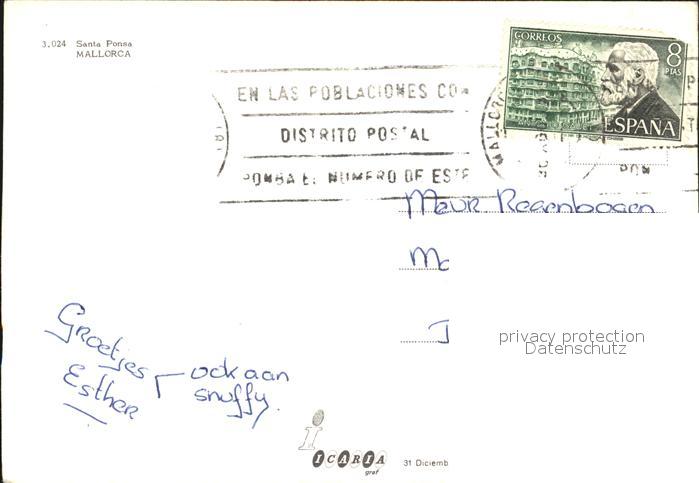 3.024 Santa Ponsa
MALLORCA
CORREOS
8
PTAS
ESPAÑA
EN LAS POBLACIONES CON
DISTRITO POSTAL
PONGA EL NUMERO DE ESTE
MALLORCA
Mevr Regenbogen
privacy protection
Datenschutz
Groetjes
Esther
ook aan
snuffy.
i
ICARIA
graf
31 Diciemb